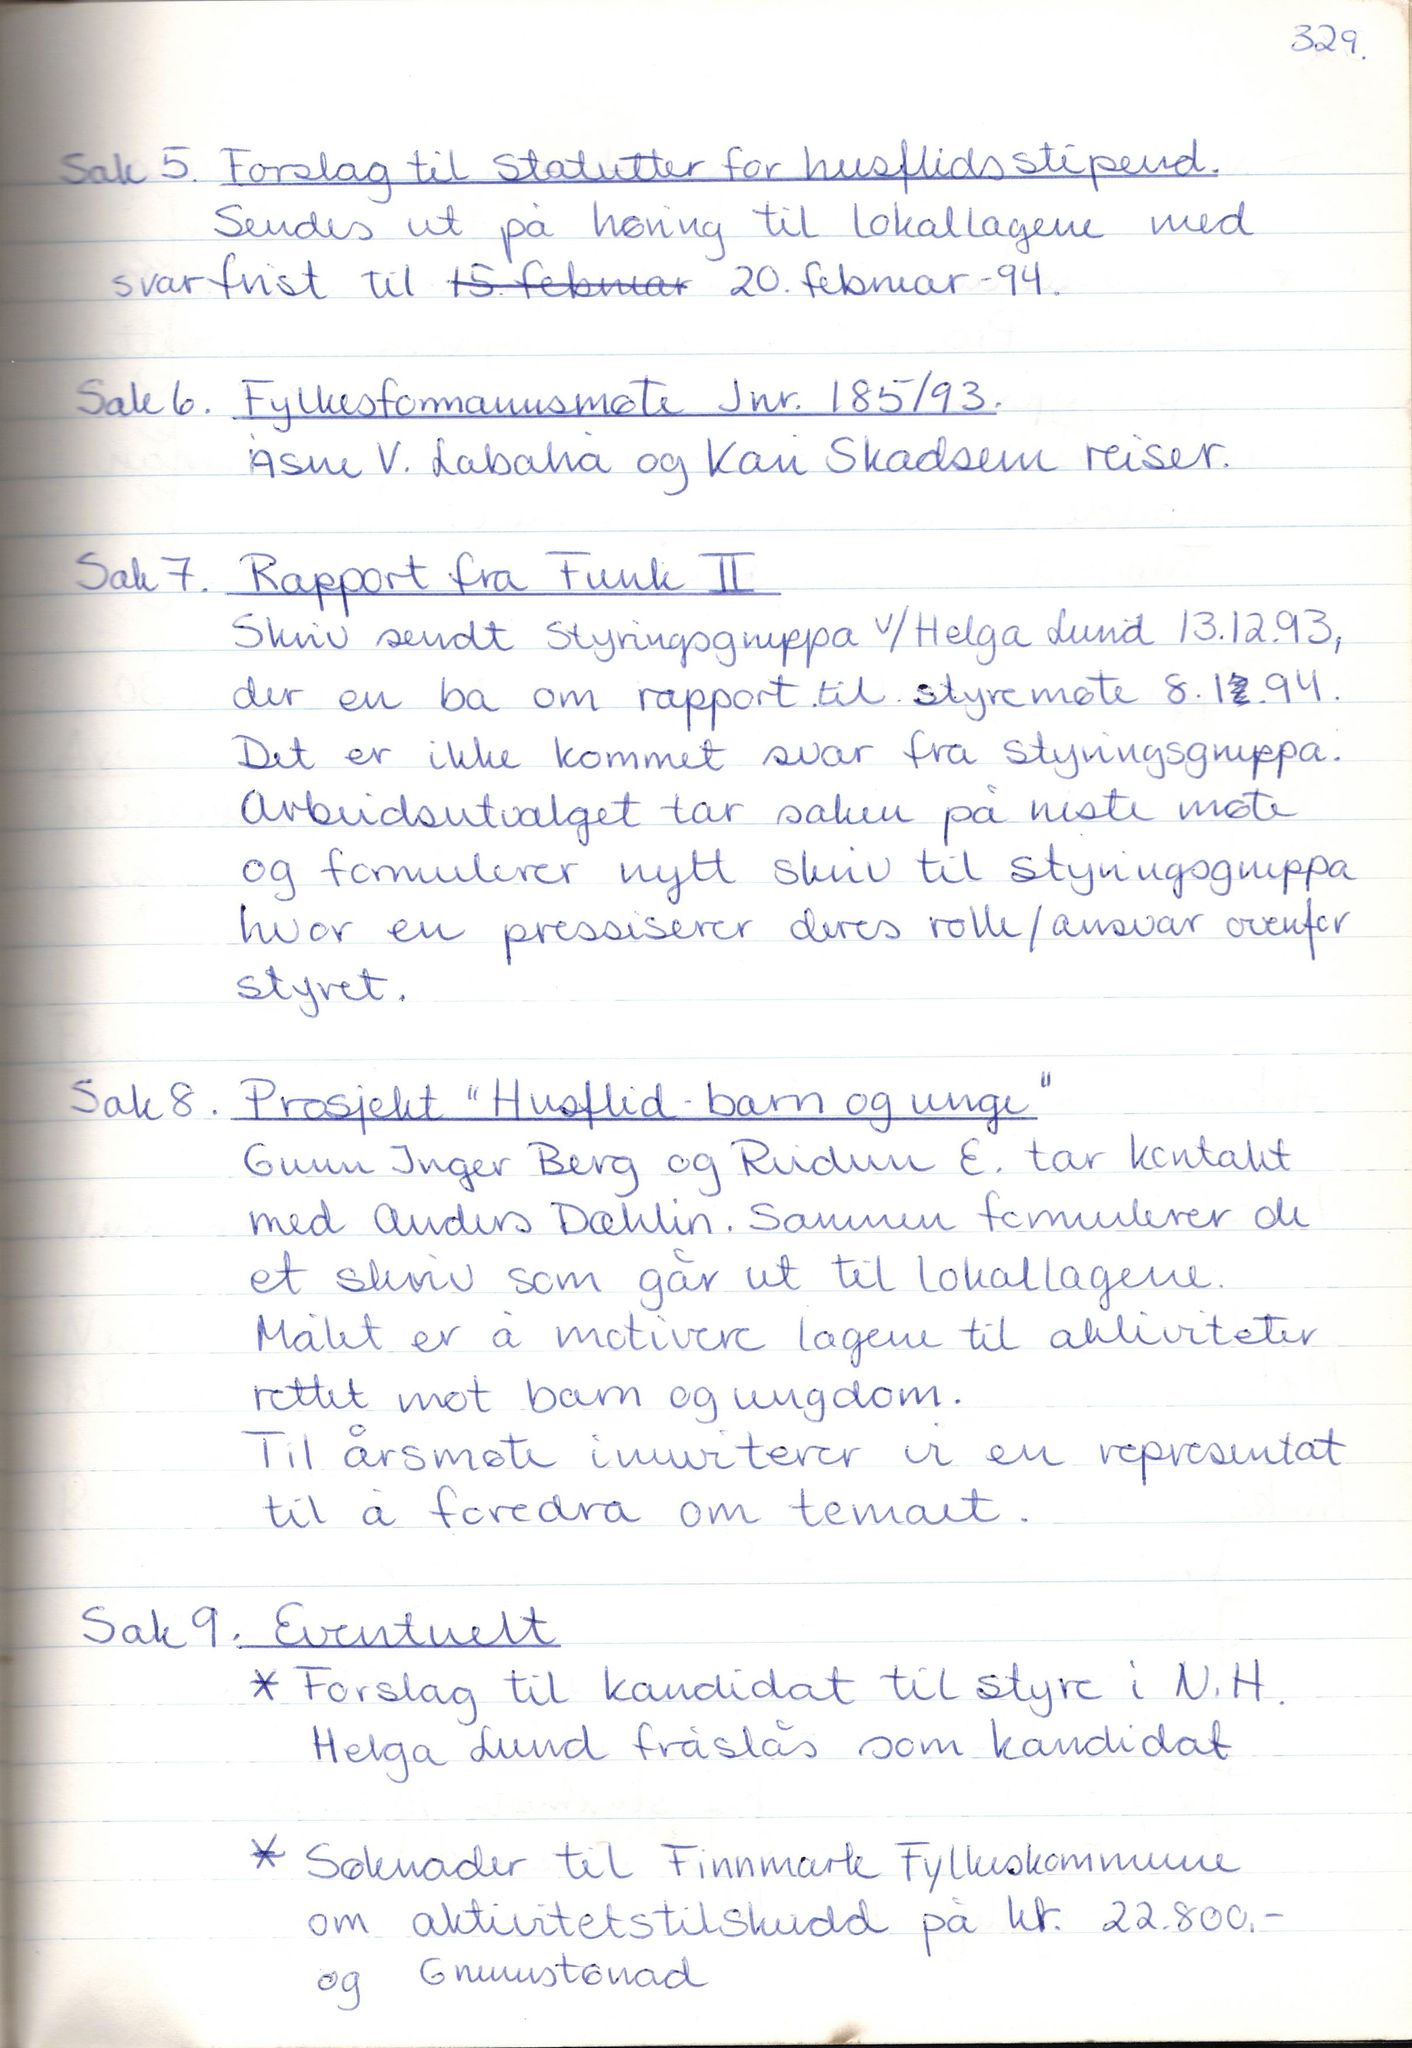 329.
Sak 5. Forslag til statutter for husflidsstipend.
Sendes ut på høring til lokallagene med
svarfrist til 15. februar 20. februar -94.
Sak 6. Fylkesformannsmøte Jnr. 185/93.
Åsne V. Labahå og Kari Skadsem reiser.
Sak 7. Rapport fra Funk II
Skriv sendt styringsgruppa v/Helga Lund 13.12.93,
der en ba om rapport til styremøte 8.1.94.
Det er ikke kommet svar fra styringsgruppa.
Arbeidsutvalget tar saken på neste møte
og formulerer nytt skriv til styringsgruppa
hvor en pressiserer deres rolle/ansvar ovenfor
styret.
Sak 8. Prosjekt "Husflid - barn og unge"
Gunn Inger Berg og Reidun E. tar kontakt
med Anders Dæhlin. Sammen formulerer de
et skriv som går ut til lokallagene.
Målet er å motivere lagene til aktiviteter
rettet mot barn og ungdom.
Til årsmøte innviterer vi en representat
til å foredra om temaet.
Sak 9. Eventuelt
* Forslag til kandidat til styre i N.H.
Helga Lund fråslås som kandidat
* Søknader til Finnmark Fylkeskommune
om aktivitetstilskudd på kr. 22.800,-
og Grunnstønad